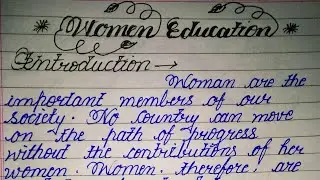 * Women Education *
Introduction →
Woman are the
important members of our
society. No country can move
on the path of progress
without the contributions of her
women. Women, therefore, are